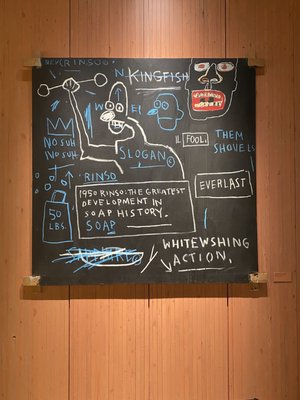 N KINGFISH
W EI
IL FOOL.
THEM
SHOVELS
NO SUH
NO SUH
SLOGAN ©
RINSO
EVERLAST
1950 RINSO: THE GREATEST
DEVELOPMENT IN
SOAP HISTORY.
SOAP
50
LBS.
WHITEWSHING
ACTION.